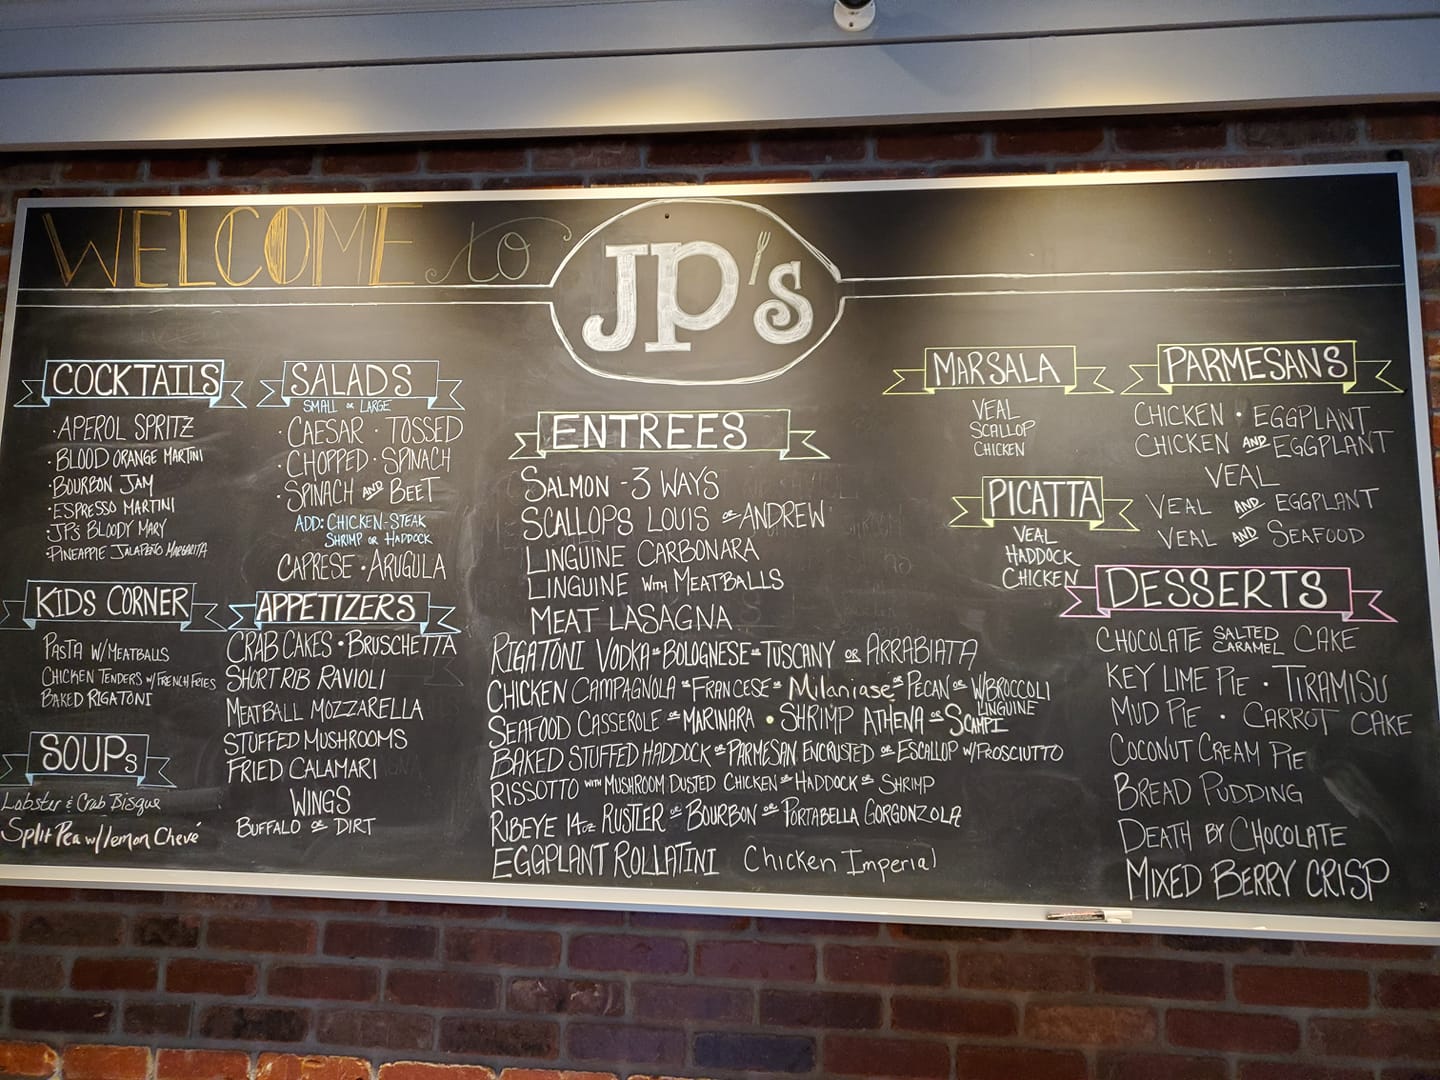 WELCOME to JP's
COCKTAILS
· APEROL SPRITZ
· BLOOD ORANGE MARTINI
· BOURBON JAM
· ESPRESSO MARTINI
· JP's BLOODY MARY
· PINEAPPLE JALAPEÑO MARGARITA
KIDS CORNER
PASTA W/MEATBALLS
CHICKEN TENDERS W/FRENCH FRIES
BAKED RIGATONI
SOUPs
Lobster & Crab Bisque
Split Pea w/lemon Chevé
SALADS
SMALL or LARGE
· CAESAR · TOSSED
· CHOPPED · SPINACH
· SPINACH AND BEET
ADD: CHICKEN-STEAK
SHRIMP or HADDOCK
CAPRESE · ARUGULA
APPETIZERS
CRAB CAKES · BRUSCHETTA
SHORT RIB RAVIOLI
MEATBALL MOZZARELLA
STUFFED MUSHROOMS
FRIED CALAMARI
WINGS
BUFFALO OR DIRT
ENTREES
SALMON - 3 WAYS
SCALLOPS LOUIS or ANDREW
LINGUINE CARBONARA
LINGUINE WITH MEATBALLS
MEAT LASAGNA
RIGATONI VODKA or BOLOGNESE or TUSCANY OR ARRABIATA
CHICKEN CAMPAGNOLA or FRANCESE or Milaniase or PECAN or W/BROCCOLI LINGUINE
SEAFOOD CASSEROLE or MARINARA • SHRIMP ATHENA or SCAMPI
BAKED STUFFED HADDOCK or PARMESAN ENCRUSTED or ESCALLOP W/PROSCIUTTO
RISSOTTO WITH MUSHROOM DUSTED CHICKEN or HADDOCK or SHRIMP
RIBEYE 14oz RUSTLER or BOURBON or PORTABELLA GORGONZOLA
EGGPLANT ROLLATINI Chicken Imperial
MARSALA
VEAL
SCALLOP
CHICKEN
PICATTA
VEAL
HADDOCK
CHICKEN
PARMESANS
CHICKEN · EGGPLANT
CHICKEN AND EGGPLANT
VEAL
VEAL AND EGGPLANT
VEAL AND SEAFOOD
DESSERTS
CHOCOLATE SALTED CARAMEL CAKE
KEY LIME PIE · TIRAMISU
MUD PIE · CARROT CAKE
COCONUT CREAM PIE
BREAD PUDDING
DEATH BY CHOCOLATE
MIXED BERRY CRISP